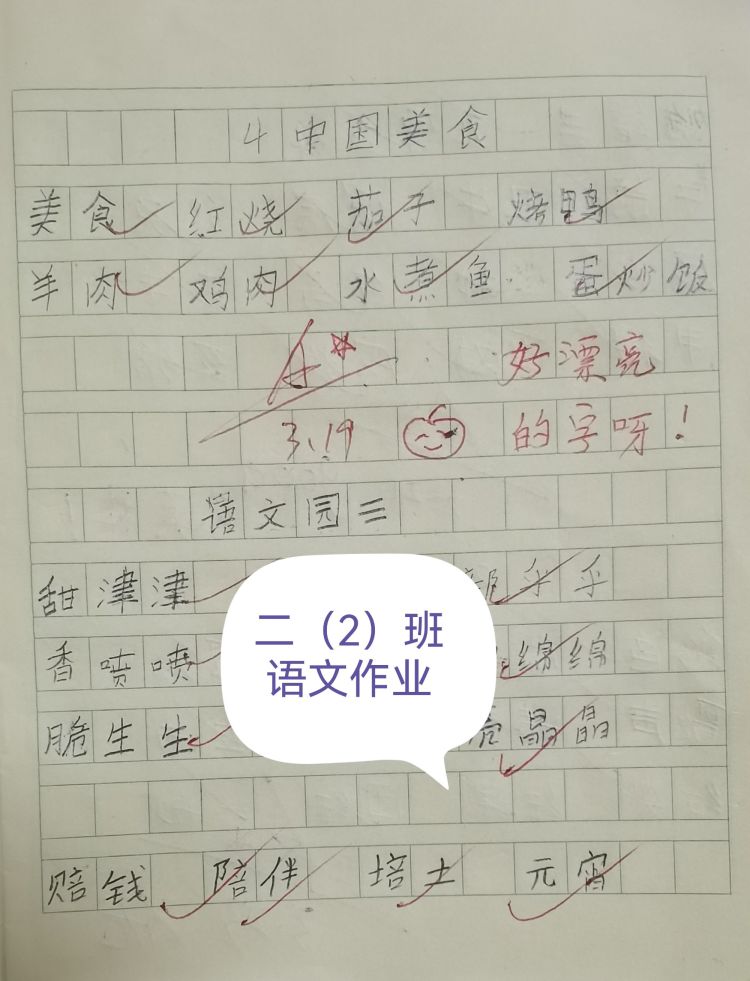 4 中国美食
美食 红烧 茄子 烤鸭
羊肉 鸡肉 水煮鱼 蛋炒饭
A* 好漂亮
3.19 的字呀!
语文园三
甜津津 乎乎
香喷喷 绵绵
脆生生 亮晶晶
二(2)班
语文作业
赔钱 陪伴 培土 元宵